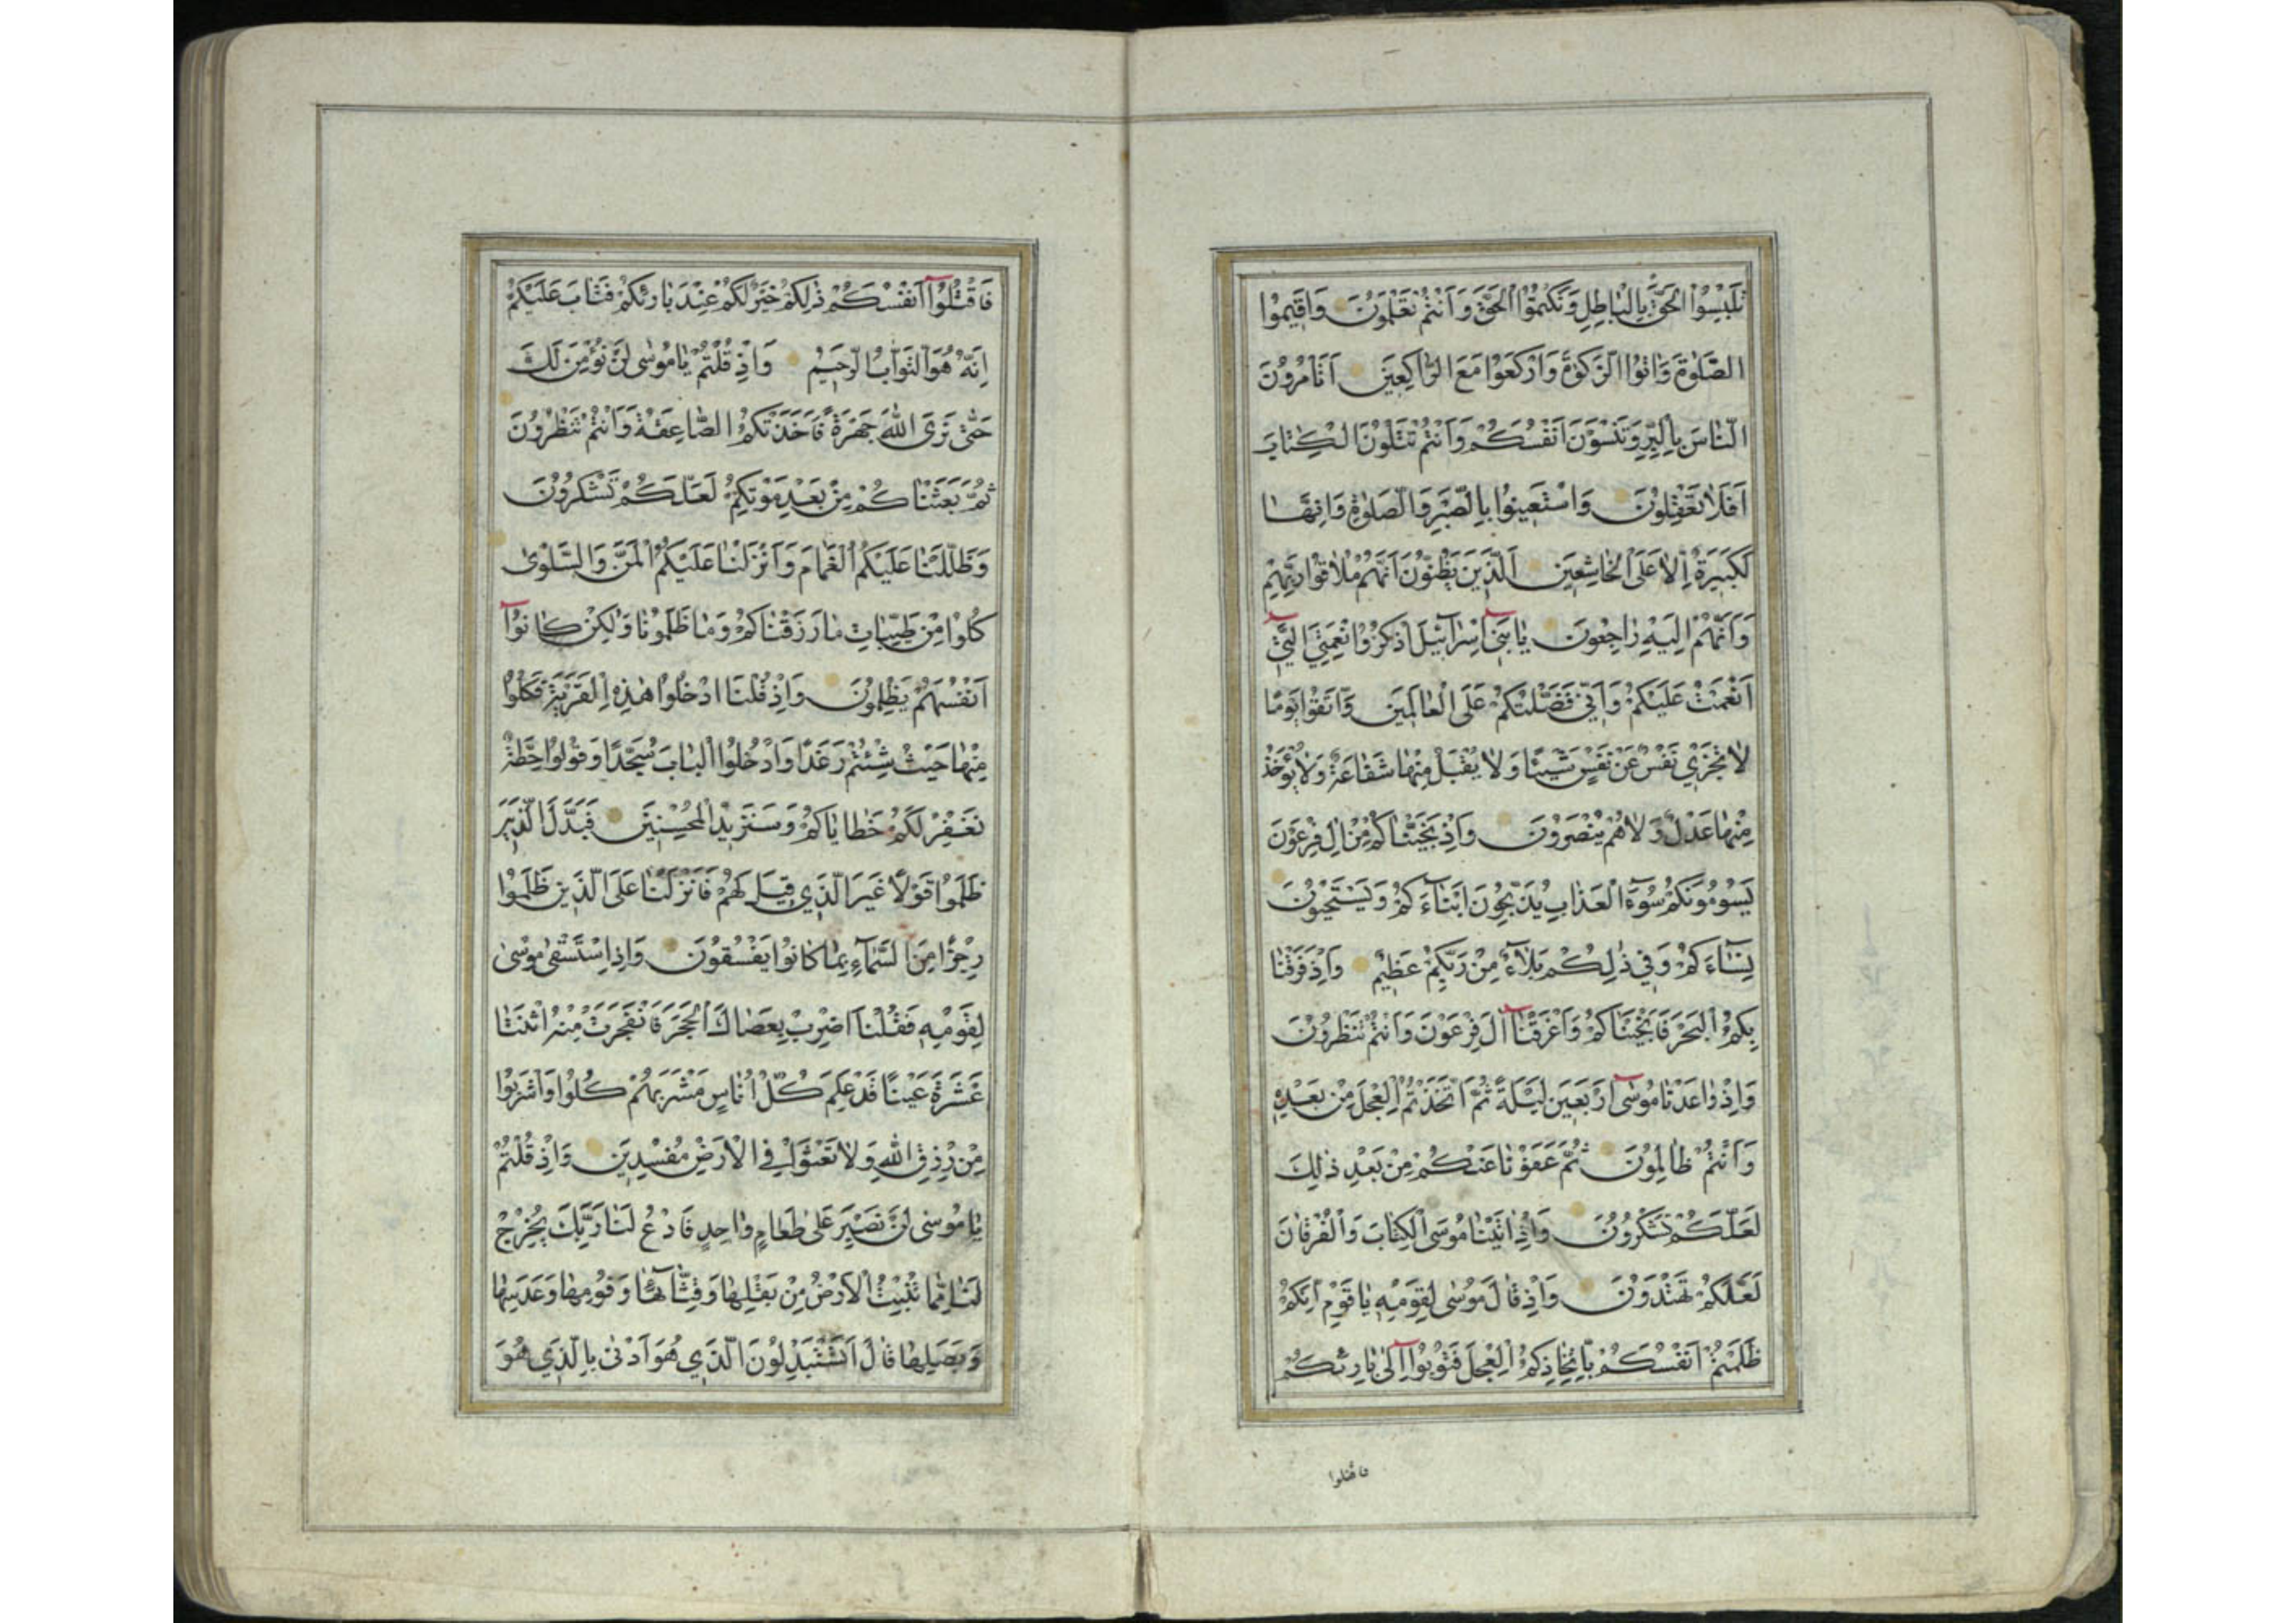 تَلْبِسُوا الْحَقَّ بِالْبَاطِلِ وَتَكْتُمُوا الْحَقَّ وَاَنْتُمْ تَعْلَمُونَ وَاَقِيمُوا
الصَّلٰوةَ وَاٰتُوا الزَّكٰوةَ وَارْكَعُوا مَعَ الرَّاكِعِينَ اَتَأْمُرُونَ
النَّاسَ بِالْبِرِّ وَتَنْسَوْنَ اَنْفُسَكُمْ وَاَنْتُمْ تَتْلُونَ الْكِتَابَ
اَفَلَا تَعْقِلُونَ وَاسْتَعِينُوا بِالصَّبْرِ وَالصَّلٰوةِ وَاِنَّهَا
لَكَبِيرَةٌ اِلَّا عَلَى الْخَاشِعِينَ اَلَّذِينَ يَظُنُّونَ اَنَّهُمْ مُلَاقُوا رَبِّهِمْ
وَاَنَّهُمْ اِلَيْهِ رَاجِعُونَ يَا بَنِي اِسْرَآئِيلَ اذْكُرُوا نِعْمَتِيَ الَّتِي
اَنْعَمْتُ عَلَيْكُمْ وَاَنِّي فَضَّلْتُكُمْ عَلَى الْعَالَمِينَ وَاتَّقُوا يَوْمًا
لَا تَجْزِي نَفْسٌ عَنْ نَفْسٍ شَيْئًا وَلَا يُقْبَلُ مِنْهَا شَفَاعَةٌ وَلَا يُؤْخَذُ
مِنْهَا عَدْلٌ وَلَا هُمْ يُنْصَرُونَ وَاِذْ نَجَّيْنَاكُمْ مِنْ اٰلِ فِرْعَوْنَ
يَسُومُونَكُمْ سُوٓءَ الْعَذَابِ يُذَبِّحُونَ اَبْنَآءَكُمْ وَيَسْتَحْيُونَ
نِسَآءَكُمْ وَفِي ذٰلِكُمْ بَلَآءٌ مِنْ رَبِّكُمْ عَظِيمٌ وَاِذْ فَرَقْنَا
بِكُمُ الْبَحْرَ فَاَنْجَيْنَاكُمْ وَاَغْرَقْنَآ اٰلَ فِرْعَوْنَ وَاَنْتُمْ تَنْظُرُونَ
وَاِذْ وَاعَدْنَا مُوسٰىٓ اَرْبَعِينَ لَيْلَةً ثُمَّ اتَّخَذْتُمُ الْعِجْلَ مِنْ بَعْدِهِ
وَاَنْتُمْ ظَالِمُونَ ثُمَّ عَفَوْنَا عَنْكُمْ مِنْ بَعْدِ ذٰلِكَ
لَعَلَّكُمْ تَشْكُرُونَ وَاِذْ اٰتَيْنَا مُوسَى الْكِتَابَ وَالْفُرْقَانَ
لَعَلَّكُمْ تَهْتَدُونَ وَاِذْ قَالَ مُوسٰى لِقَوْمِهِ يَا قَوْمِ اِنَّكُمْ
ظَلَمْتُمْ اَنْفُسَكُمْ بِاتِّخَاذِكُمُ الْعِجْلَ فَتُوبُوآ اِلٰى بَارِئِكُمْ
فاقتلوا
فَاقْتُلُوآ اَنْفُسَكُمْ ذٰلِكُمْ خَيْرٌ لَكُمْ عِنْدَ بَارِئِكُمْ فَتَابَ عَلَيْكُمْ
اِنَّهُ هُوَ التَّوَّابُ الرَّحِيمُ وَاِذْ قُلْتُمْ يَا مُوسٰى لَنْ نُؤْمِنَ لَكَ
حَتّٰى نَرَى اللّٰهَ جَهْرَةً فَاَخَذَتْكُمُ الصَّاعِقَةُ وَاَنْتُمْ تَنْظُرُونَ
ثُمَّ بَعَثْنَاكُمْ مِنْ بَعْدِ مَوْتِكُمْ لَعَلَّكُمْ تَشْكُرُونَ
وَظَلَّلْنَا عَلَيْكُمُ الْغَمَامَ وَاَنْزَلْنَا عَلَيْكُمُ الْمَنَّ وَالسَّلْوٰى
كُلُوا مِنْ طَيِّبَاتِ مَا رَزَقْنَاكُمْ وَمَا ظَلَمُونَا وَلٰكِنْ كَانُوآ
اَنْفُسَهُمْ يَظْلِمُونَ وَاِذْ قُلْنَا ادْخُلُوا هٰذِهِ الْقَرْيَةَ فَكُلُوا
مِنْهَا حَيْثُ شِئْتُمْ رَغَدًا وَادْخُلُوا الْبَابَ سُجَّدًا وَقُولُوا حِطَّةٌ
نَغْفِرْ لَكُمْ خَطَايَاكُمْ وَسَنَزِيدُ الْمُحْسِنِينَ فَبَدَّلَ الَّذِينَ
ظَلَمُوا قَوْلًا غَيْرَ الَّذِي قِيلَ لَهُمْ فَاَنْزَلْنَا عَلَى الَّذِينَ ظَلَمُوا
رِجْزًا مِنَ السَّمَآءِ بِمَا كَانُوا يَفْسُقُونَ وَاِذِ اسْتَسْقٰى مُوسٰى
لِقَوْمِهِ فَقُلْنَا اضْرِبْ بِعَصَاكَ الْحَجَرَ فَانْفَجَرَتْ مِنْهُ اثْنَتَا
عَشْرَةَ عَيْنًا قَدْ عَلِمَ كُلُّ اُنَاسٍ مَشْرَبَهُمْ كُلُوا وَاشْرَبُوا
مِنْ رِزْقِ اللّٰهِ وَلَا تَعْثَوْا فِي الْاَرْضِ مُفْسِدِينَ وَاِذْ قُلْتُمْ
يَا مُوسٰى لَنْ نَصْبِرَ عَلٰى طَعَامٍ وَاحِدٍ فَادْعُ لَنَا رَبَّكَ يُخْرِجْ
لَنَا مِمَّا تُنْبِتُ الْاَرْضُ مِنْ بَقْلِهَا وَقِثَّآئِهَا وَفُومِهَا وَعَدَسِهَا
وَبَصَلِهَا قَالَ اَتَسْتَبْدِلُونَ الَّذِي هُوَ اَدْنٰى بِالَّذِي هُوَ